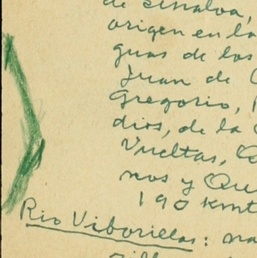 de Sinaloa,
origen en la
guas de los
Juan de
Gregorio,
dios, de la
Vueltas,
nos y Que
190 kmt
Rio Viborillas: na